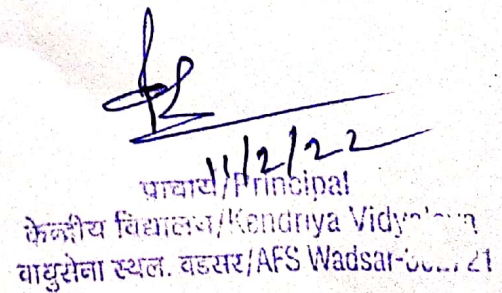 11/2/22
प्राचार्य/Principal
केन्द्रीय विद्यालय/Kendriya
वायुसेना स्थल. वडसर/AFS Wadsar-